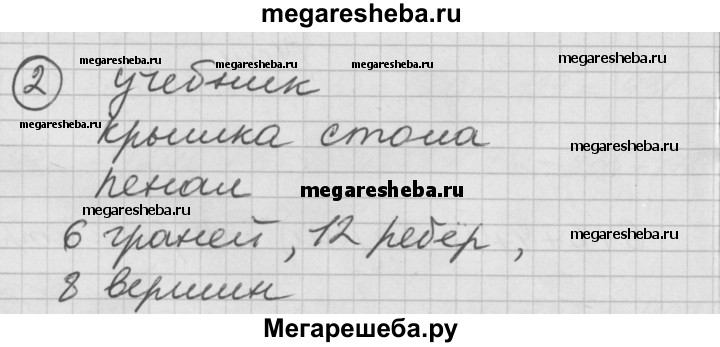 megaresheba.ru
megaresheba.ru megaresheba.ru megaresheba.ru
② учебник
megaresheba.ru
крышка стола megaresheba.ru
пенал megaresheba.ru
megaresheba.ru
6 граней, 12 рёбер, megaresheba.ru
8 вершин
Мегарешеба.ру